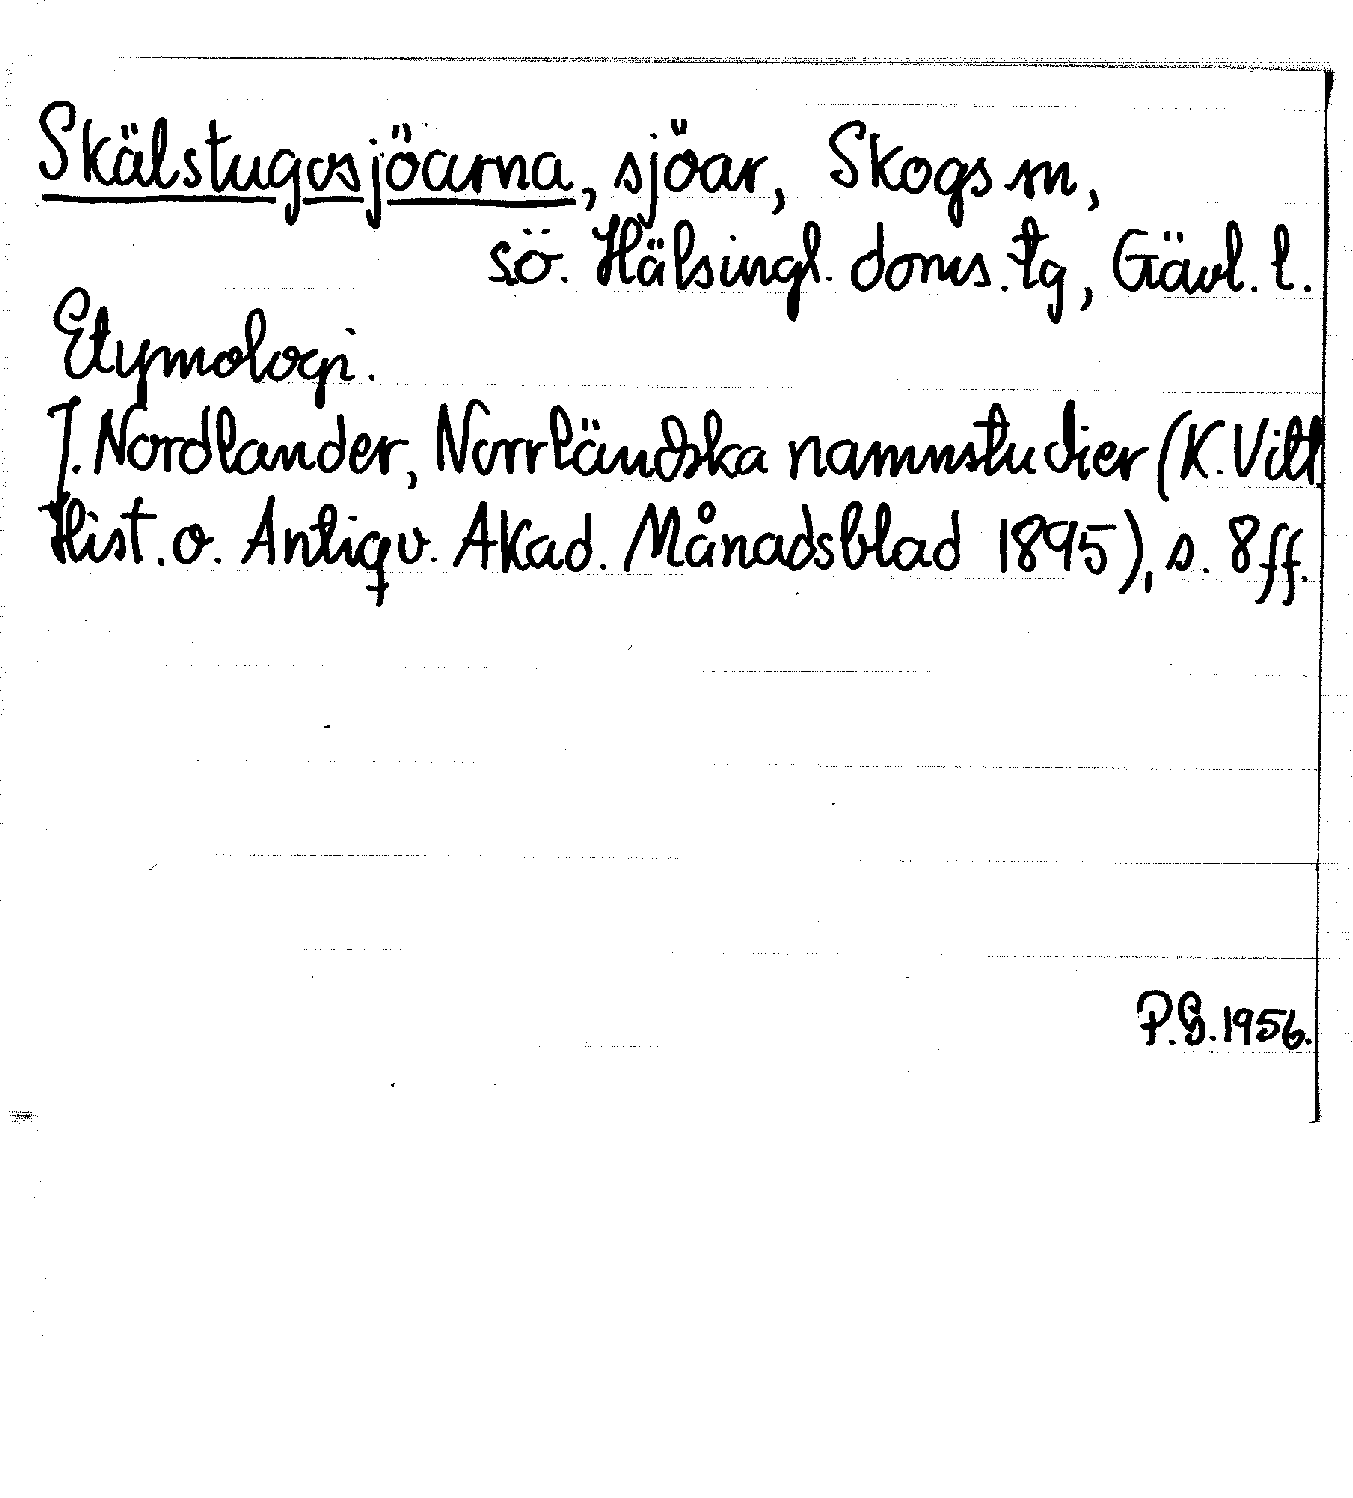 Skälstugosjöarna, sjöar, Skogs sn,
sö. Hälsingl. doms.tg, Gävl. l.
Etymologi.
J. Nordlander, Norrländska namnstudier (K. Vitt.
Hist. o. Antiqv. Akad. Månadsblad 1895), s. 8ff.
P.G. 1956.